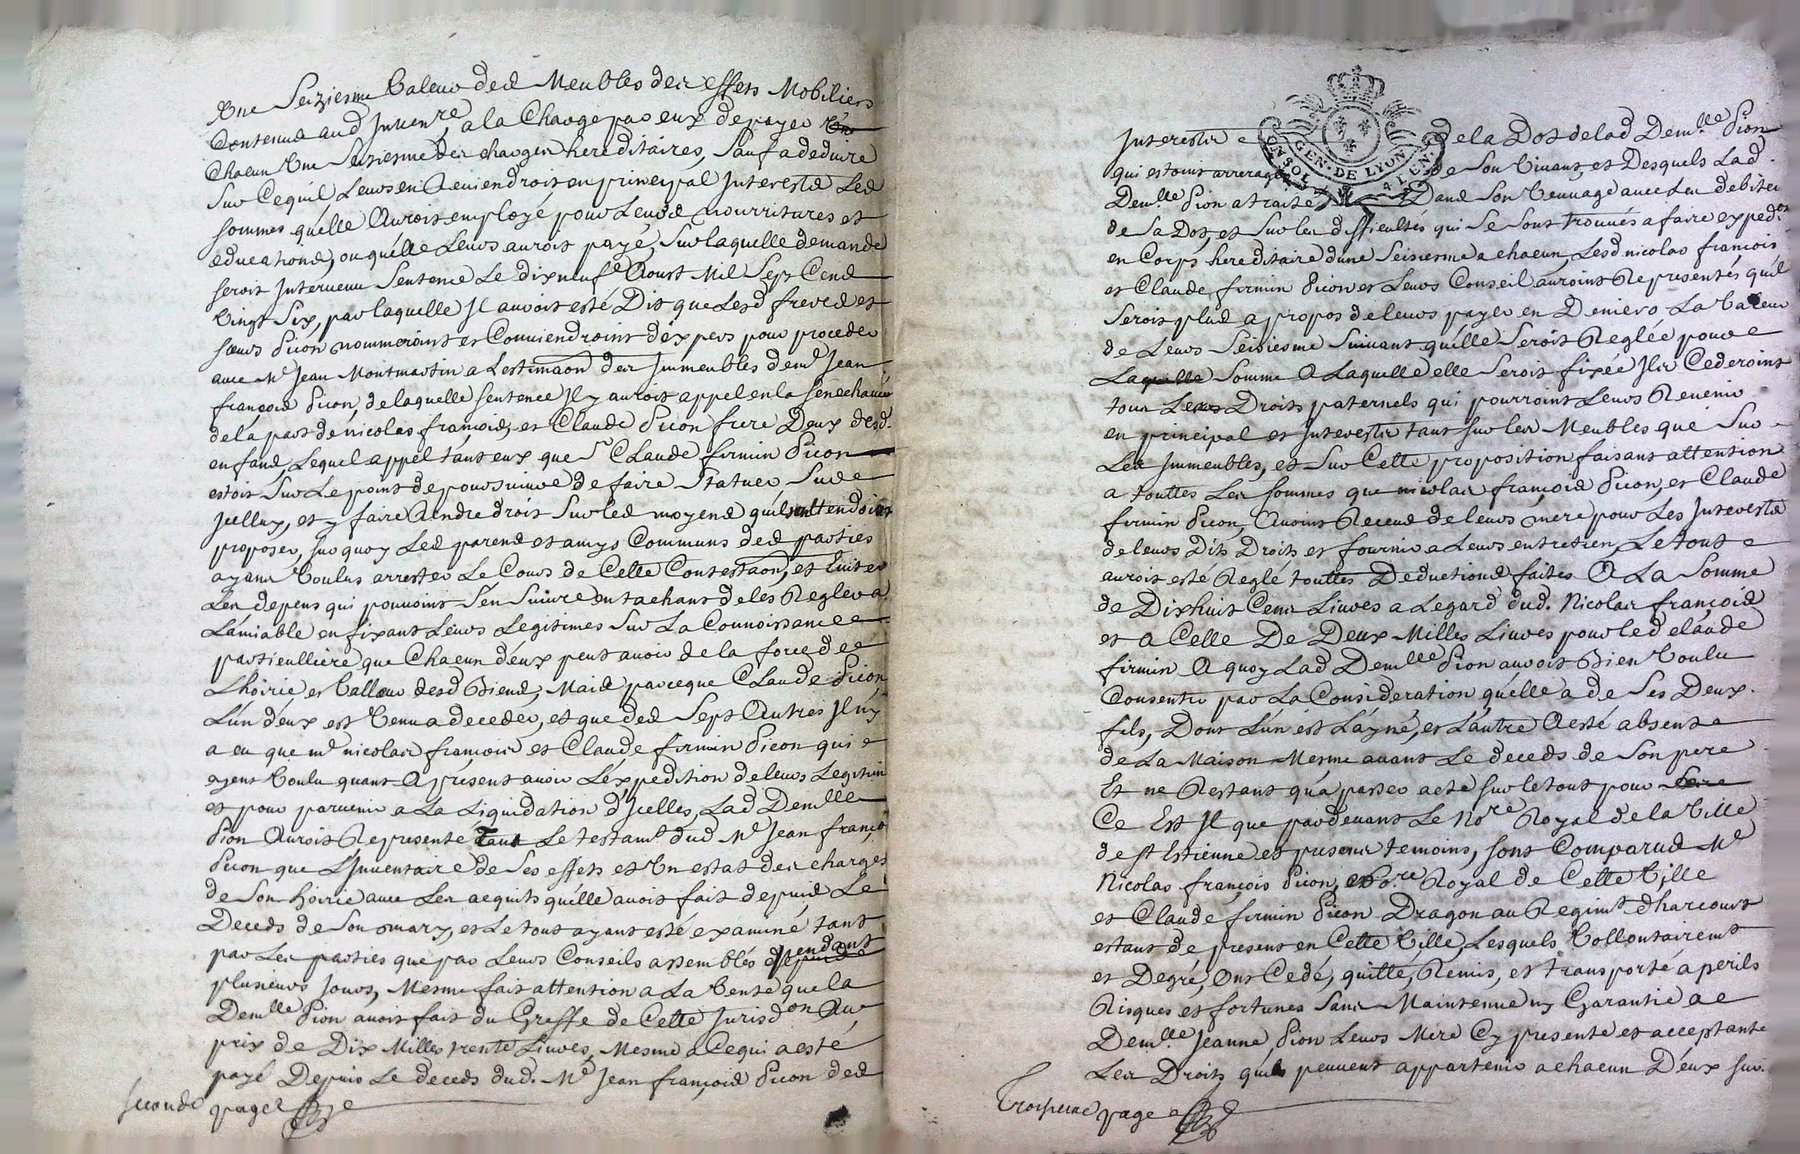 Une Seiziesme Valeur desd Meubles des effets Mobiliers
Contenus aud Invenre, a la Charge par eux de payer
Chacun Une Seiziesme des charges hereditaires, Sauf a deduire
Sur Cequil Leurs en Reviendroit en principal Interestz Les
sommes quélle Auroit employé pour Leurs nourritures et
éducations, ou quélle Leurs auroit payé, Sur laquelle demande
seroit Intervenu Sentence Le dixneufe Aoust Mil Sept Cens
Vingt Six, par laquelle Il auroit esté Dit que Lesd freres et
sœurs Picon nommeroint et Conviendroint déxpers pour proceder
avec Mr Jean Montmartin a Lestimaon des Immeubles dem Jean
françois Picon, de laquelle sentence Il y auroit appel en la sénéchaucé
de la part de nicolas françois, et Claude Picon frere Deux desd.
enfans, Lequel appel tant eux que Sr Claude firmin Picon
estoit Sur Le point de poursuivre de faire Statuer Sur
Jcelluy, et y faire Rendre droit Sur les moyens quils attendoient
proposer, surquoy Les parens et amys Communs des parties
ayant Voulus arrester Le Cours de Cette Contestaon, et Eviter
Les depens qui pouvoint S'en Suivre en tachant de les Regler a
L'amiable en fixant Leurs Legitimes Sur La Connoissance
particulliere que Chacun déux peut avoir de la force de
Lhoirie et Valleur desd Biens, Mais parceque Claude Picon
L'un déux est Venu a deceder, et que des Sept Autres Il ny
a eu que me nicolas françois et Claude firmin Picon qui
ayent Voulu quant A present avoir L'éxpedition de leurs Legitim
et pour parvenir a La Liquidation d'Jcelles, Lad Demlle
Pion Auroit Represente Tant Le testamt dud Me Jean franço
Picon que L'Inventaire de Ses effets et Un estat des charges
de Son hoirie avec Les acquits quélle avoit fait depuis Le
Deceds de Son mary, et Le tout ayant esté examiné tant
par Les parties que par Leurs Conseils assemblés pendant
plusieurs Jours, Mesme fait attention a La Vente que la
Demlle Pion avoit fait du Greffe de Cette Jurisdon Au
prix de Dix Milles trente Livres, Mesme a Cequi a esté
payé Depuis Le deceds dud. Me Jean françois Picon des
seconde page
Interestz de la Dot de lad Demlle Pion
qui estoint arreragés de Son Vivant, et Desquels Lad.
Demlle Pion a traité Dans Son Veuvage avec Les debiteurs
de Sa Dot, et Sur les difficultés qui Se Sont trouvés a faire expedon
en Corps hereditaire d'une Seisiesme a chacun, Lesd nicolas françois
et Claude firmin Picon et Leurs Conseil auroint Representés quil
Seroit plus a propos de leurs payer en Deniers La Valeur
de Leurs Seisiesme Suivant quélle Seroit Reglée pour
Laquelle Somme A Laquelle elle Seroit fixée Ils Cederoint
tous Leurs Droits paternels qui pourroint Leurs Revenir
en principal et Interestz tant Sur les Meubles que Sur
Les Immeubles, et Sur Cette proposition faisant attention
a touttes Les sommes que nicolas françois Picon, et Claude
firmin Picon, Avoint Receus de leurs mere pour Les Interestz
de leurs Dits Droits et fournir a Leurs entretien, Le tout
auroit esté Reglé touttes Deductions faites A La Somme
de Dixhuit Cens Livres a Legard dud. Nicolas françois
et A Celle De Deux Milles Livres pour led claude
firmin A quoy Lad Demlle Pion auroit Bien Voulu
Consentir par La Consideration quélle a de Ses Deux
fils, Dont L'un est L'ayné, et L'autre A esté absent
de La Maison Mesme avant Le deceds de Son pere
Et ne Restant qu'a passer acte sur le tout pour
Ce Est Il que pardevant Le Nore Royal de la Ville
de st Estienne et presens temoins, sont Comparus Me
Nicolas françois Picon, Royal de Cette Ville
et Claude firmin Picon Dragon au Regimt dharcourt
estant de present en Cette Ville, Lesquels Vollontairemt
et Degré, Ont Cedé, quitté, Remis, et transporté a perils
Risques et fortunes Sans Maintenue ny Garantie a
Demlle Jeanne Pion Leurs Mere Cy presente et acceptante
Les Droits quils peuvent appartenir a chacun Déux sur
GEN. DE LYON
Troisieme page